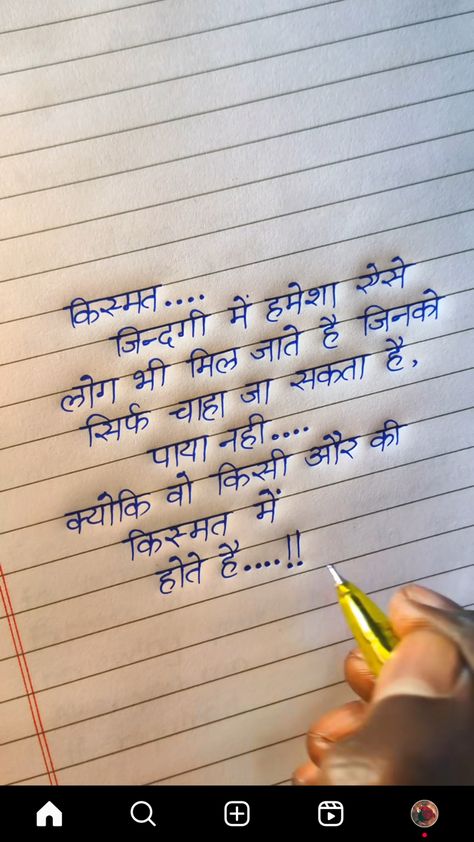 किस्मत....
जिन्दगी में हमेशा ऐसे
लोग भी मिल जाते है जिनको
सिर्फ चाहा जा सकता है,
पाया नही....
क्योकि वो किसी और की
किस्मत में
होते है....!!